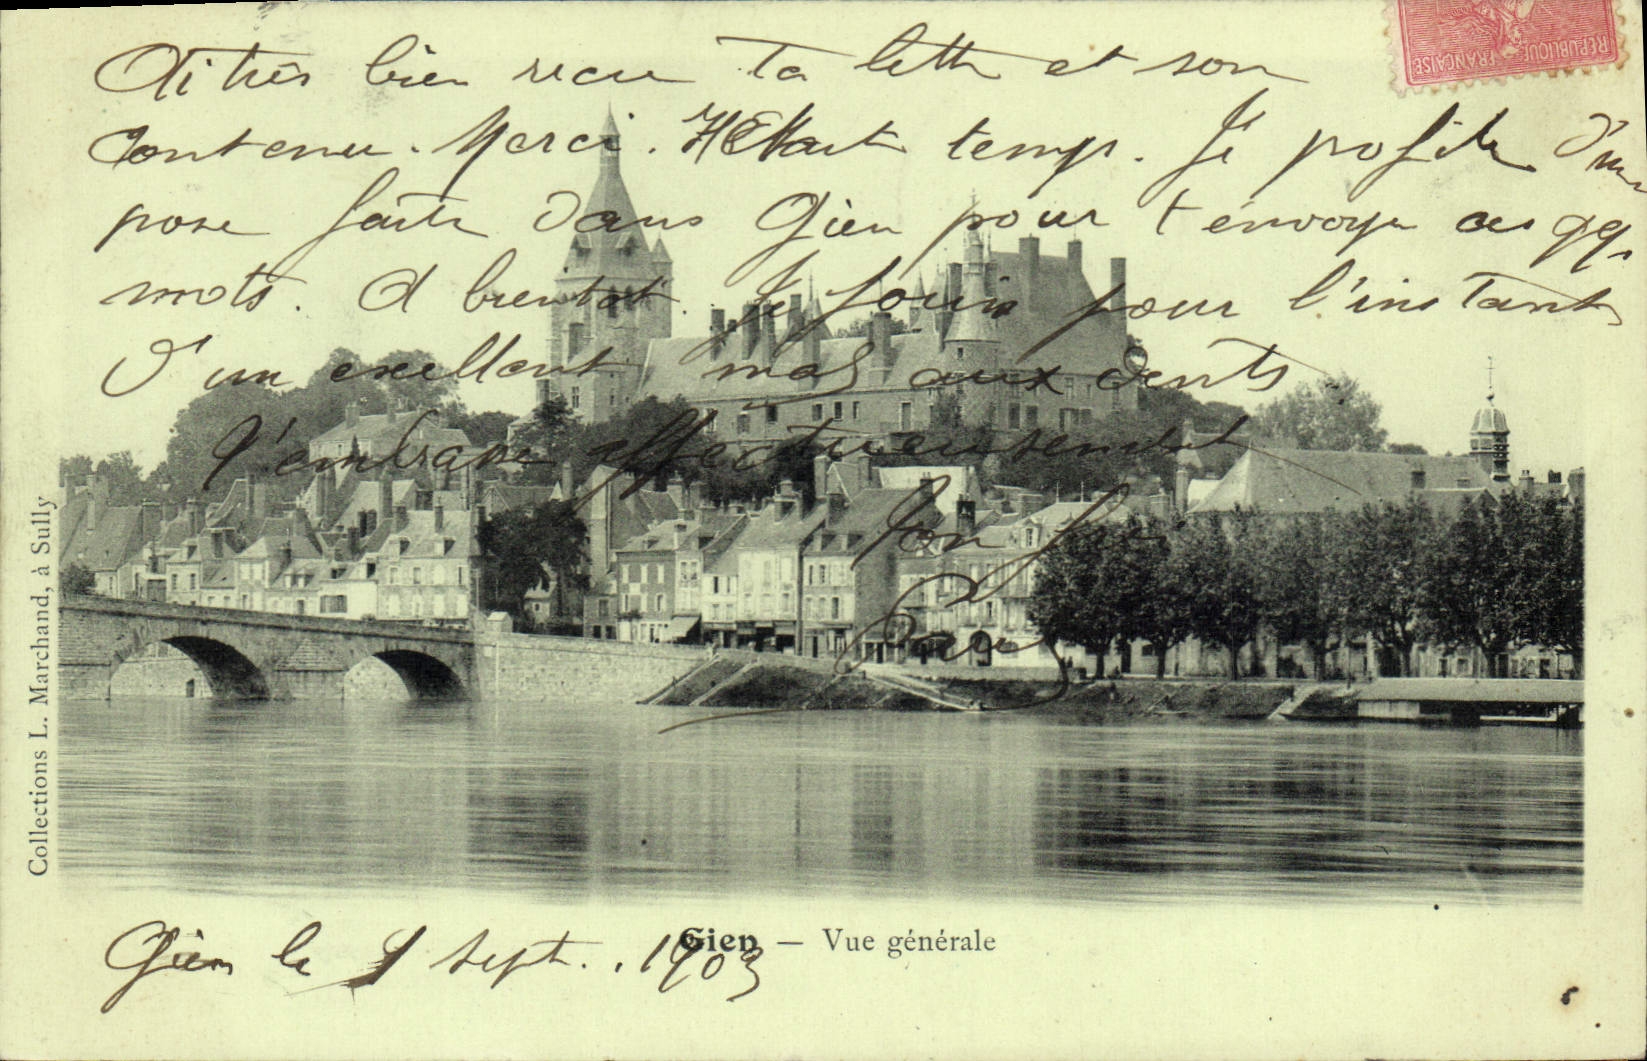 Ai très bien reçu Ta lettre et son
Contenu. Merci. Il Etait temps. Je profite d'une
pose faite dans Gien pour t'envoyer ces qqs.
mots. A bientot. Je jouis pour l'instant
d'un exellent mal aux dents
T'embrasse affectueusement
Ton
REPUBLIQUE FRANCAISE
Collections L. Marchand, à Sully
Gien — Vue générale
Gien le 1 Sept. 1903